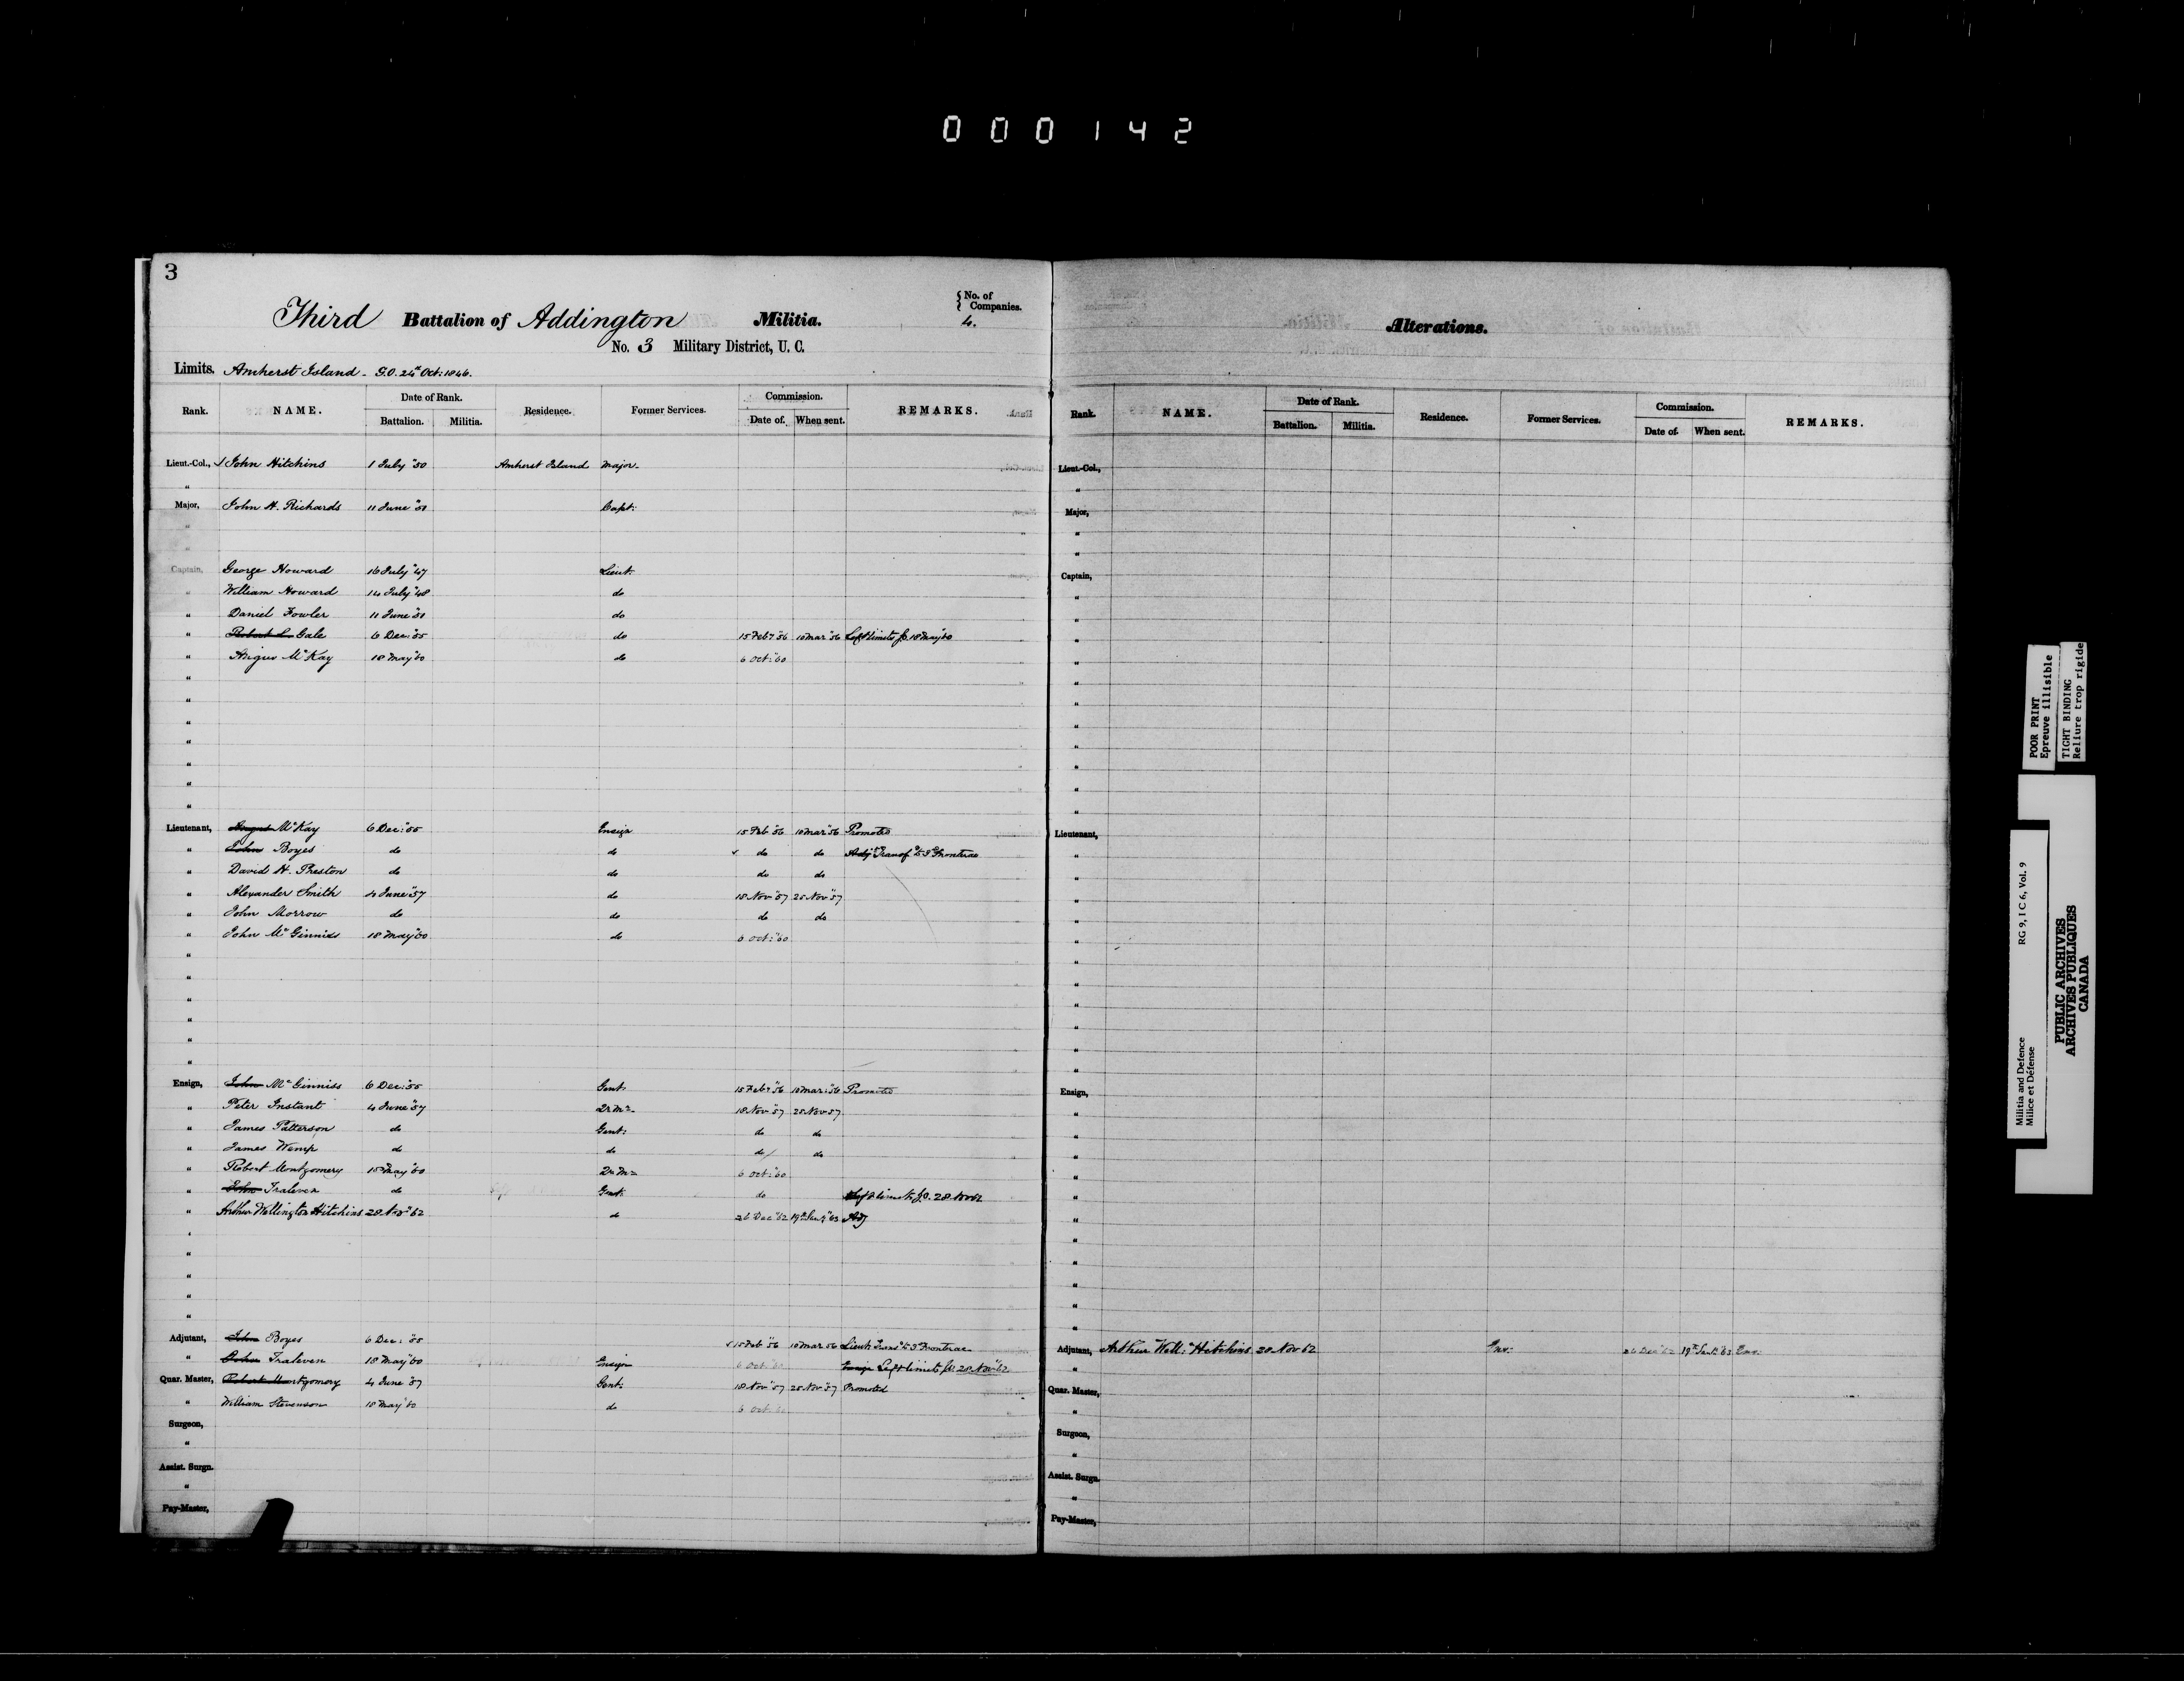 000142
3
Third Battalion of Addington Militia.
No. of Companies.
4.
No. 3 Military District, U. C.
Limits. Amherst Island - G.O. 24th Oct: 1846.
Rank. NAME. Date of Rank. Battalion. Militia. Residence. Former Services. Commission. Date of. When sent. REMARKS.
Lieut.-Col., John Hitchins 1 July "50 Amherst Island Major.
"
Major, John H. Richards 11 June "51 Capt:
"
"
Captain, George Howard 16 July "47 Lieut:
" William Howard 14 July "48 do
" Daniel Fowler 11 June "51 do
" Robert L. Gale 6 Dec: "55 do 15 Feby "56 10 Mar "56 Left limits 18 May "60
" Angus McKay 18 May "60 do 6 Oct: "60
"
"
"
"
"
"
"
Lieutenant, Angus McKay 6 Dec: "55 Ensign 15 Feb "56 10 Mar "56 Promoted
" John Boyes do do do do Adjt Transf d to 3d Frontenac
" David H. Preston do do do do
" Alexander Smith 4 June "57 do 18 Nov "57 25 Nov "57
" John Morrow do do do do
" John McGinniss 18 May "60 do 6 Oct: "60
"
"
"
"
"
"
Ensign, John McGinniss 6 Dec: "55 Gent: 15 Feby "56 10 Mar: "56 Promoted
" Peter Instant 4 June "57 Qr Mr 18 Nov "57 25 Nov "57
" James Patterson do Gent: do do
" James Wemp do do do do
" Robert Montgomery 18 May "60 Qr Mr 6 Oct: "60
" John Traleven do Gent: do Left limits G.O. 28 Nov 62
" Arthur Wellington Hitchins 28 Nov "62 do 26 Dec "62 19th Jany "63 Adj
"
"
"
"
"
Adjutant, John Boyes 6 Dec: "55 15 Feb "56 10 Mar 56 Lieut: Trans d to 3d Frontenac
" John Traleven 18 May "60 Ensign 6 Oct "60 Ensign Left limits 28 Nov "62
Quar. Master, Robert Montgomery 4 June "57 Gent: 18 Nov "57 25 Nov "57 Promoted
" William Stevenson 18 May "60 do 6 Oct: 60
Surgeon,
"
Assist. Surgn.
"
Pay-Master,
Alterations.
Rank. NAME. Date of Rank. Battalion. Militia. Residence. Former Services. Commission. Date of. When sent. REMARKS.
Lieut.-Col.,
"
Major,
"
"
Captain,
"
"
"
"
"
"
"
"
"
"
"
Lieutenant,
"
"
"
"
"
"
"
"
"
"
"
Ensign,
"
"
"
"
"
"
"
"
"
"
"
Adjutant, Arthur Well: n Hitchins 28 Nov 62 Ens: 26 Dec "62 19th Jany "63 Ens:
"
Quar. Master,
"
Surgeon,
"
Assist. Surgn.
"
Pay-Master,
POOR PRINT
Epreuve illisible
TIGHT BINDING
Reliure trop rigide
Militia and Defence
Milice et Défense
RG 9, I C 6, Vol. 9
PUBLIC ARCHIVES
ARCHIVES PUBLIQUES
CANADA